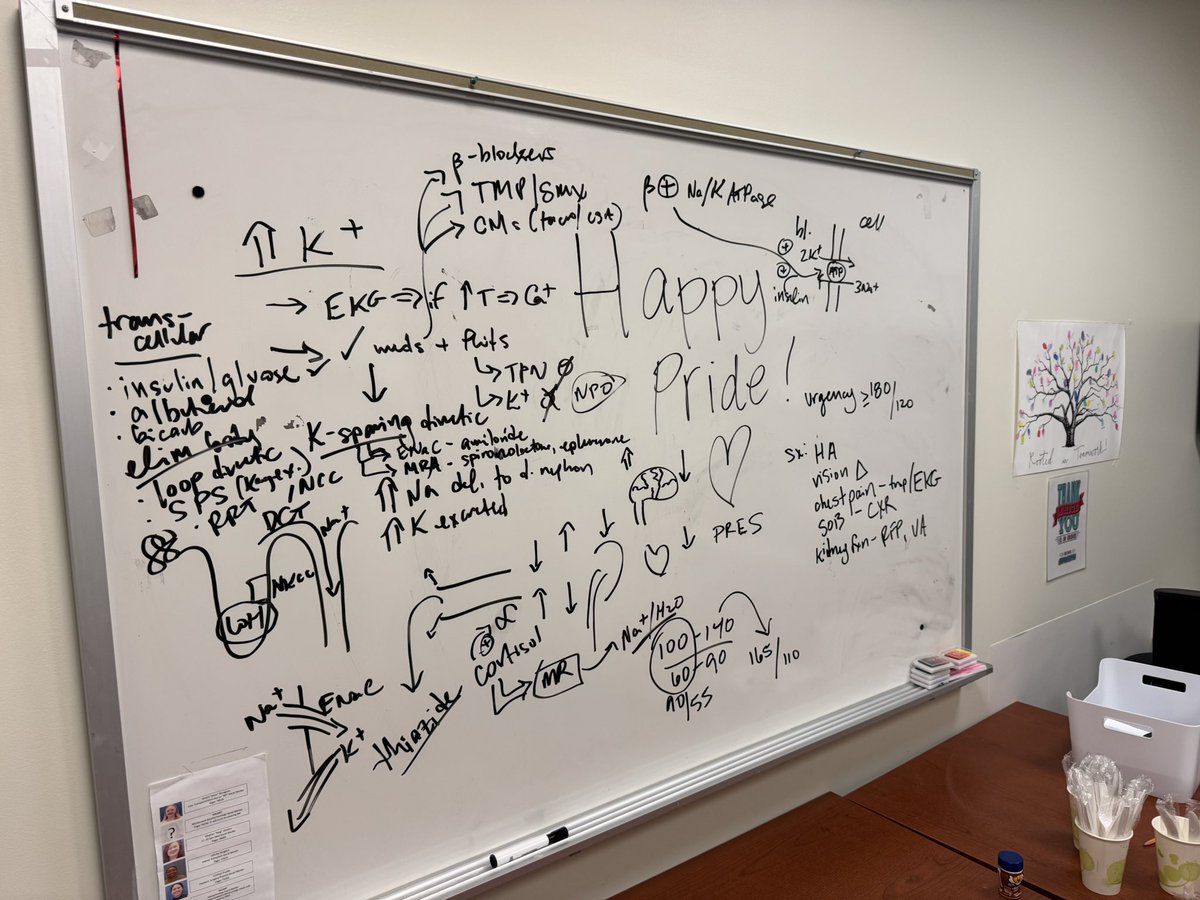 β-blockers
TMP/SMX
CNs (tacro/CSA)
⇑ K+
→ EKG ⇒ if ↑T ⇒ Ca+
✓ meds + fluids
↳ TPN
↳ K+
NPO
trans-
cellular
· insulin/glucose
· albuterol
· bicarb
elim
· loop diuretic
· SPS (Kayex.)
· RRT
K-sparing diuretic
↳ ENaC - amiloride
↳ MRA - spironolactone, eplerenone
⇑ Na deli. to d. nephron
⇑ K excreted
DCT
NCC
Na+
NKCC
LOH
Na+
ENaC
K+
thiazide
Happy
Pride!
β ⊕ Na/K ATPase
bl.
cell
2K+
ATP
3Na+
insulin
urgency ≥180/
120
sx: HA
vision Δ
chest pain - trop/EKG
SOB - CXR
kidney fxn - RFP, UA
PRES
⊕ α
cortisol
↳ MR
Na+/H2O
100-140
60-90
165/110
90/55
Rooted in Teamwork!
THANK
YOU